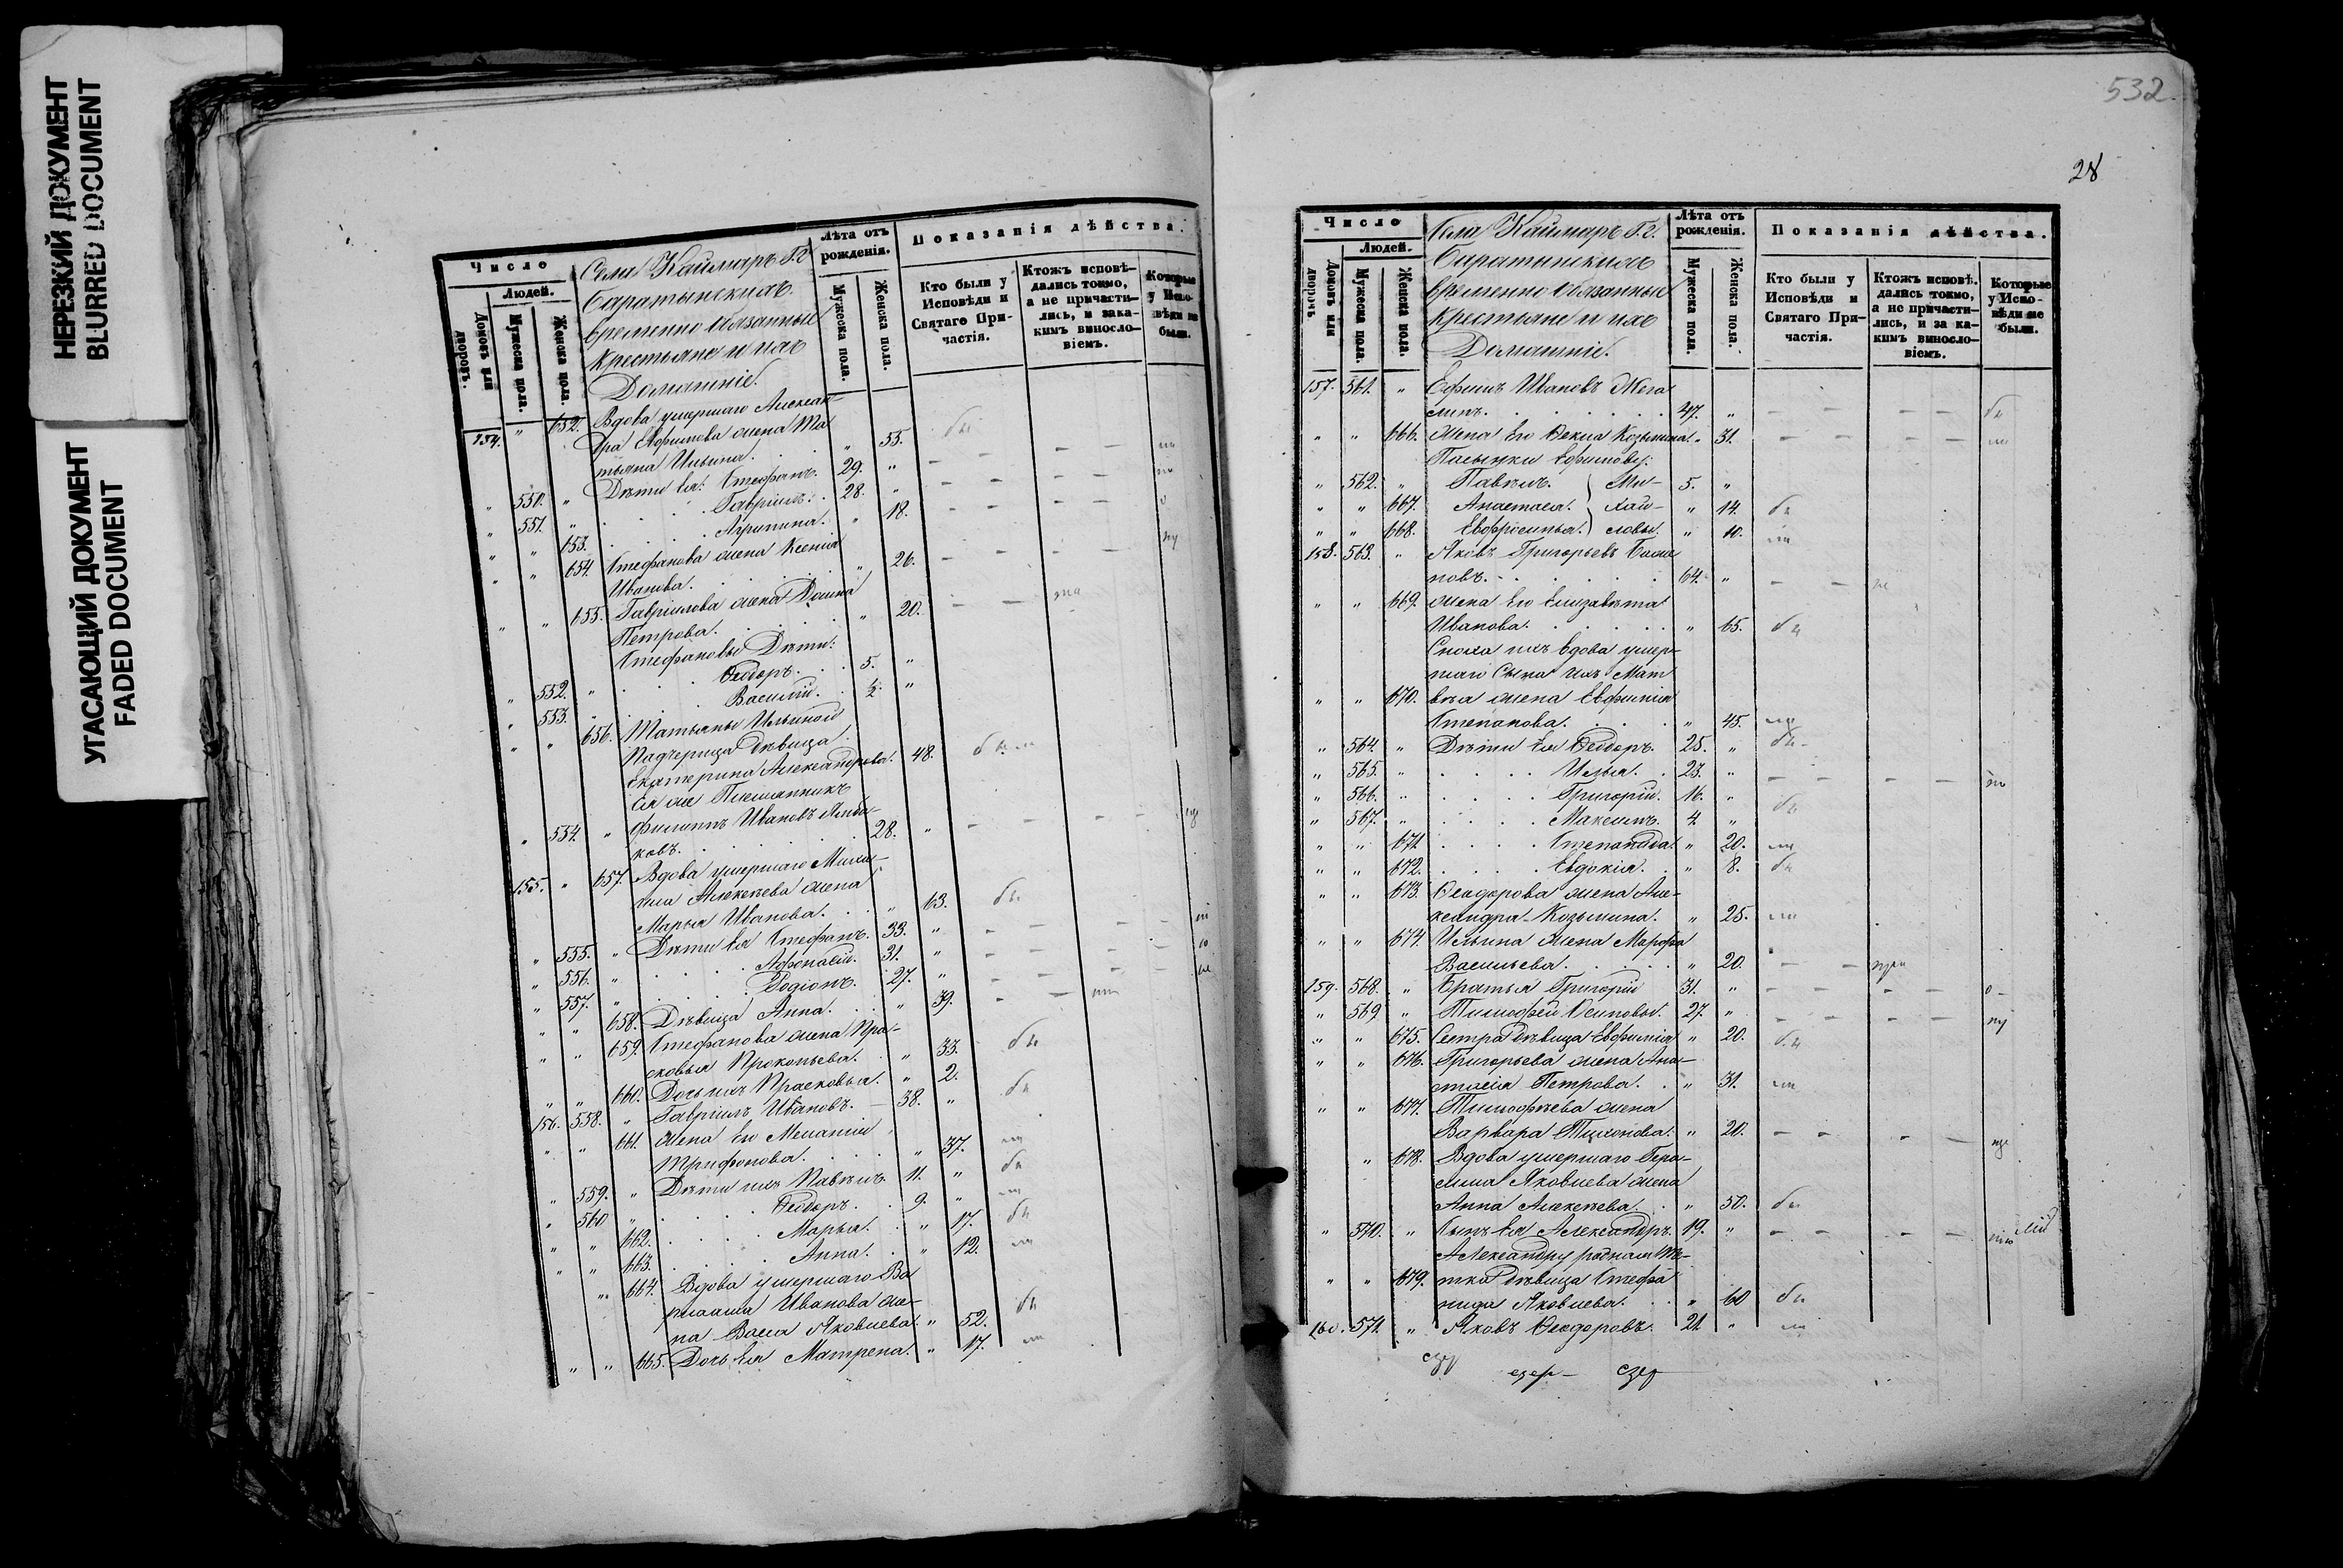 НЕРЕЗКИЙ ДОКУМЕНТ
BLURRED DOCUMENT
УГАСАЮЩИЙ ДОКУМЕНТ
FADED DOCUMENT
Число
Людей.
Домовъ или дворовъ.
Мужеска пола.
Женска пола.
Села Каймаръ Г.г.
Баратынскихъ
временно обязанные
Крестьяне и ихъ
Домашніе.
Лѣта отъ рожденія.
Мужеска пола.
Женска пола.
Показанія дѣйства.
Кто были у Исповѣди и Святаго Причастія.
Ктожъ исповѣдались токмо, а не причастились, и за какимъ винословіемъ.
Которые у Исповѣди не были.
154. " 652. Вдова умершаго Алексан
дра Ефимова жена Та
тьяна Ильина. " 55. бы
" 550. " Дѣти ея: Стефанъ. 29. "
" 551. " Гавріилъ. 28. "
" " 653. Агрипина. " 18.
" " 654. Стефанова жена Ксенія
Иванова. " 26.
" " 655. Гавріилова жена Домна
Петрова. " 20.
Стефановы Дѣти:
" 552. " Ѳеодоръ. 5. "
" 553. " Василій. ½. "
" " 656. Татьяны Ильиной
Падчерица дѣвица
Екатерина Александрова. 48.
Ея же Племянникъ
" 554. " Филиппъ Ивановъ
ковъ. 28. "
155. " 657. Вдова умершаго Михаи-
ла Алексѣева жена
Марья Иванова. " 63. бы
" 555. " Дѣти ея Стефанъ. 33. "
" 556. " Афонасій. 31. "
" 557. " Родіонъ. 27. "
" " 658. Дѣвица Анна. " 39.
" " 659. Стефанова жена Пра-
сковья Прокопьева. " 33. бы
" " 660. Дочь ихъ Прасковья. " 2. бы
156. 558. " Гавріилъ Ивановъ. 38. "
" " 661. Жена его Меланія
Трифонова. " 37.
" 559. " Дѣти ихъ Павелъ 11. " бы
" 560 " Ѳеодоръ. 9. "
" " 662. Марья. " 17. бы
" " 663. Анна. " 12.
" " 664. Вдова умершаго Ва
рлаама Иванова же-
на Васса Яковлева. " 52. бы
" " 665. Дочь ея Матрена. " 17.
532
28
Число
Людей.
Домовъ или дворовъ.
Мужеска пола.
Женска пола.
Села Каймаръ Г.г.
Баратынскихъ
временно обязанные
Крестьяне и ихъ
Домашніе.
Лѣта отъ рожденія.
Мужеска пола.
Женска пола.
Показанія дѣйства.
Кто были у Исповѣди и Святаго Причастія.
Ктожъ исповѣдались токмо, а не причастились, и за какимъ винословіемъ.
Которые у Исповѣди не были.
157. 561. " Ефимъ Ивановъ Жега
линъ. 47. "
" " 666. Жена его Ѳекла Козьмина. " 31.
Пасынки Ефимовы:
" 562. " Павелъ. Ми- 5. "
" " 667. Анастасія. хай- " 14. бы
" " 668. Евфросинья. ловы. " 10.
158. 563. " Яковъ Григорьевъ
новъ. 64. "
" " 669. Жена его Елизавета
Иванова. " 65. бы
Сноха ихъ вдова умер-
шаго Сына ихъ Мат
" " 670. вѣя жена Евфимія
Степанова. " 45.
" 564. " Дѣти ея Ѳеодоръ. 25. " бы
" 565. " Илья. 23. "
" 566. " Григорій. 16. " бы
" 567. " Максимъ. 4 "
" " 671. Степанида. " 20.
" " 672. Евдокія. " 8. бы
" " 673. Ѳеодорова жена Але-
ксандра Козьмина. " 25.
" " 674. Ильина жена Марфа
Васильева. " 20.
159. 568. " Братья Григорій 31. "
" 569 " Тимофей Осиповы. 27. "
" " 675. Сестра дѣвица Евфимія " 20. бы
" " 676. Григорьева жена Ана-
стасія Петрова. " 31.
" " 677. Тимофѣева жена
Варвара Тихонова. " 20.
" 678. Вдова умершаго Гера-
сима Яковлева жена
Анна Алексѣева. " 50. бы
" 570. " Сынъ ея Александръ. 19. "
Александру родная Тѣ-
" " 679. тка дѣвица Стефа
нида Яковлева. " 60 бы
160. 571. " Яковъ Ѳеодоровъ. 21. "